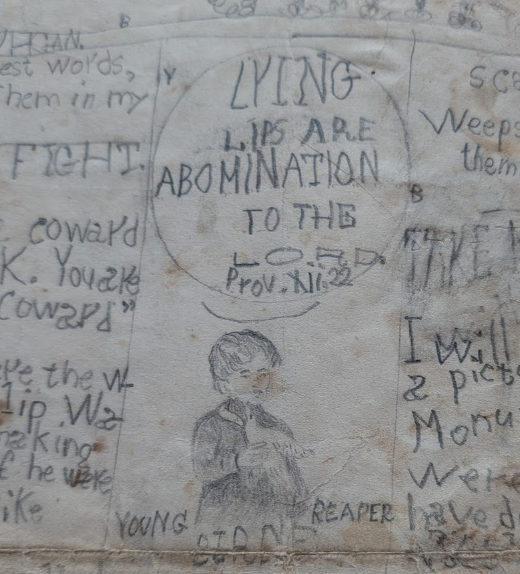 B
VEGAN.
est words,
them in my
FIGHT.
coward
K. You are
Coward"
the w
lip. Wa
making
f he were
ike
LYING
LIPS ARE
ABOMINATION
TO THE
LORD.
Prov. XII. 22
YOUNG
REAPER
sca
Weeps
them
B
TAKE
I will
a pict
Monu
were
have d